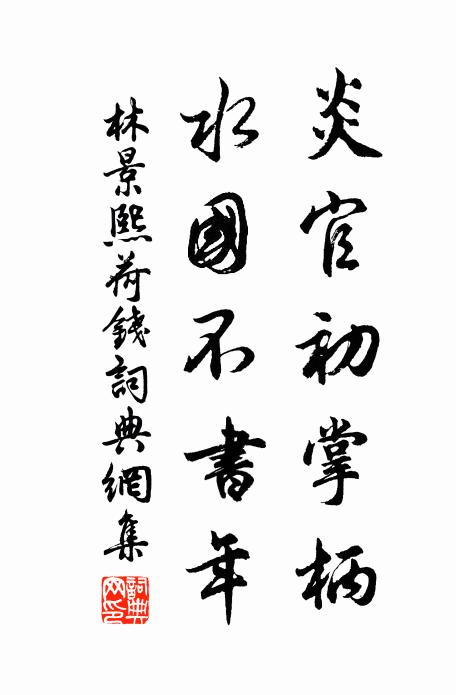 炎官初掌柄
水國不書年
林景熙荷錢詞典網集
詞典網印